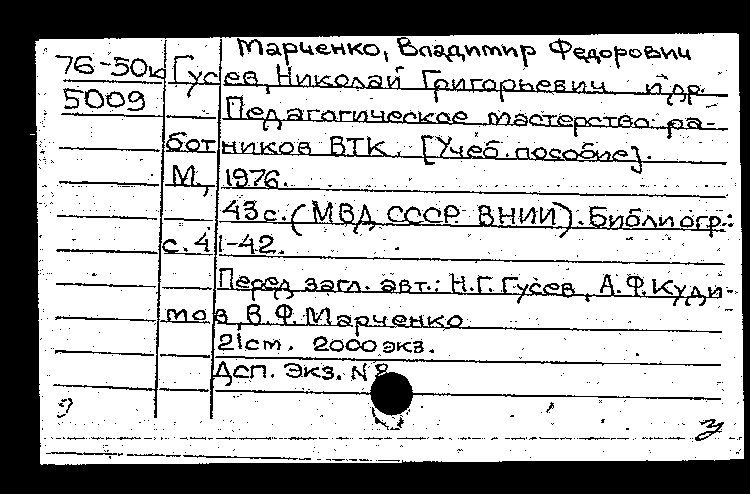 Марченко, Владимир Федорович
76-50к Гусев, Николай Григорьевич и др.
5009 Педагогическое мастерство ра-
ботников ВТК. [Учеб. пособие].
М., 1976.
43 с. (МВД СССР ВНИИ). Библиогр.:
с. 41-42.
Перед загл. авт.: Н.Г. Гусев, А.Ф. Куди-
тов, В.Ф. Марченко
21 cm. 2000 экз.
Дсп. Экз. N 8